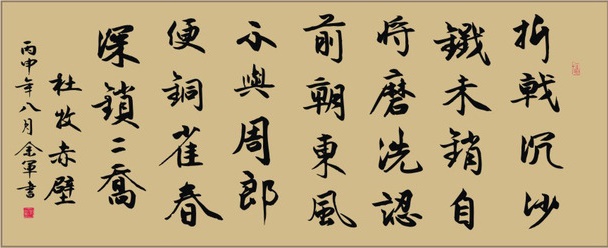 折戟沉沙
鐵未銷自
將磨洗認
前朝東風
不與周郎
便銅雀春
深鎖二喬
杜牧赤壁
丙申年八月軍書